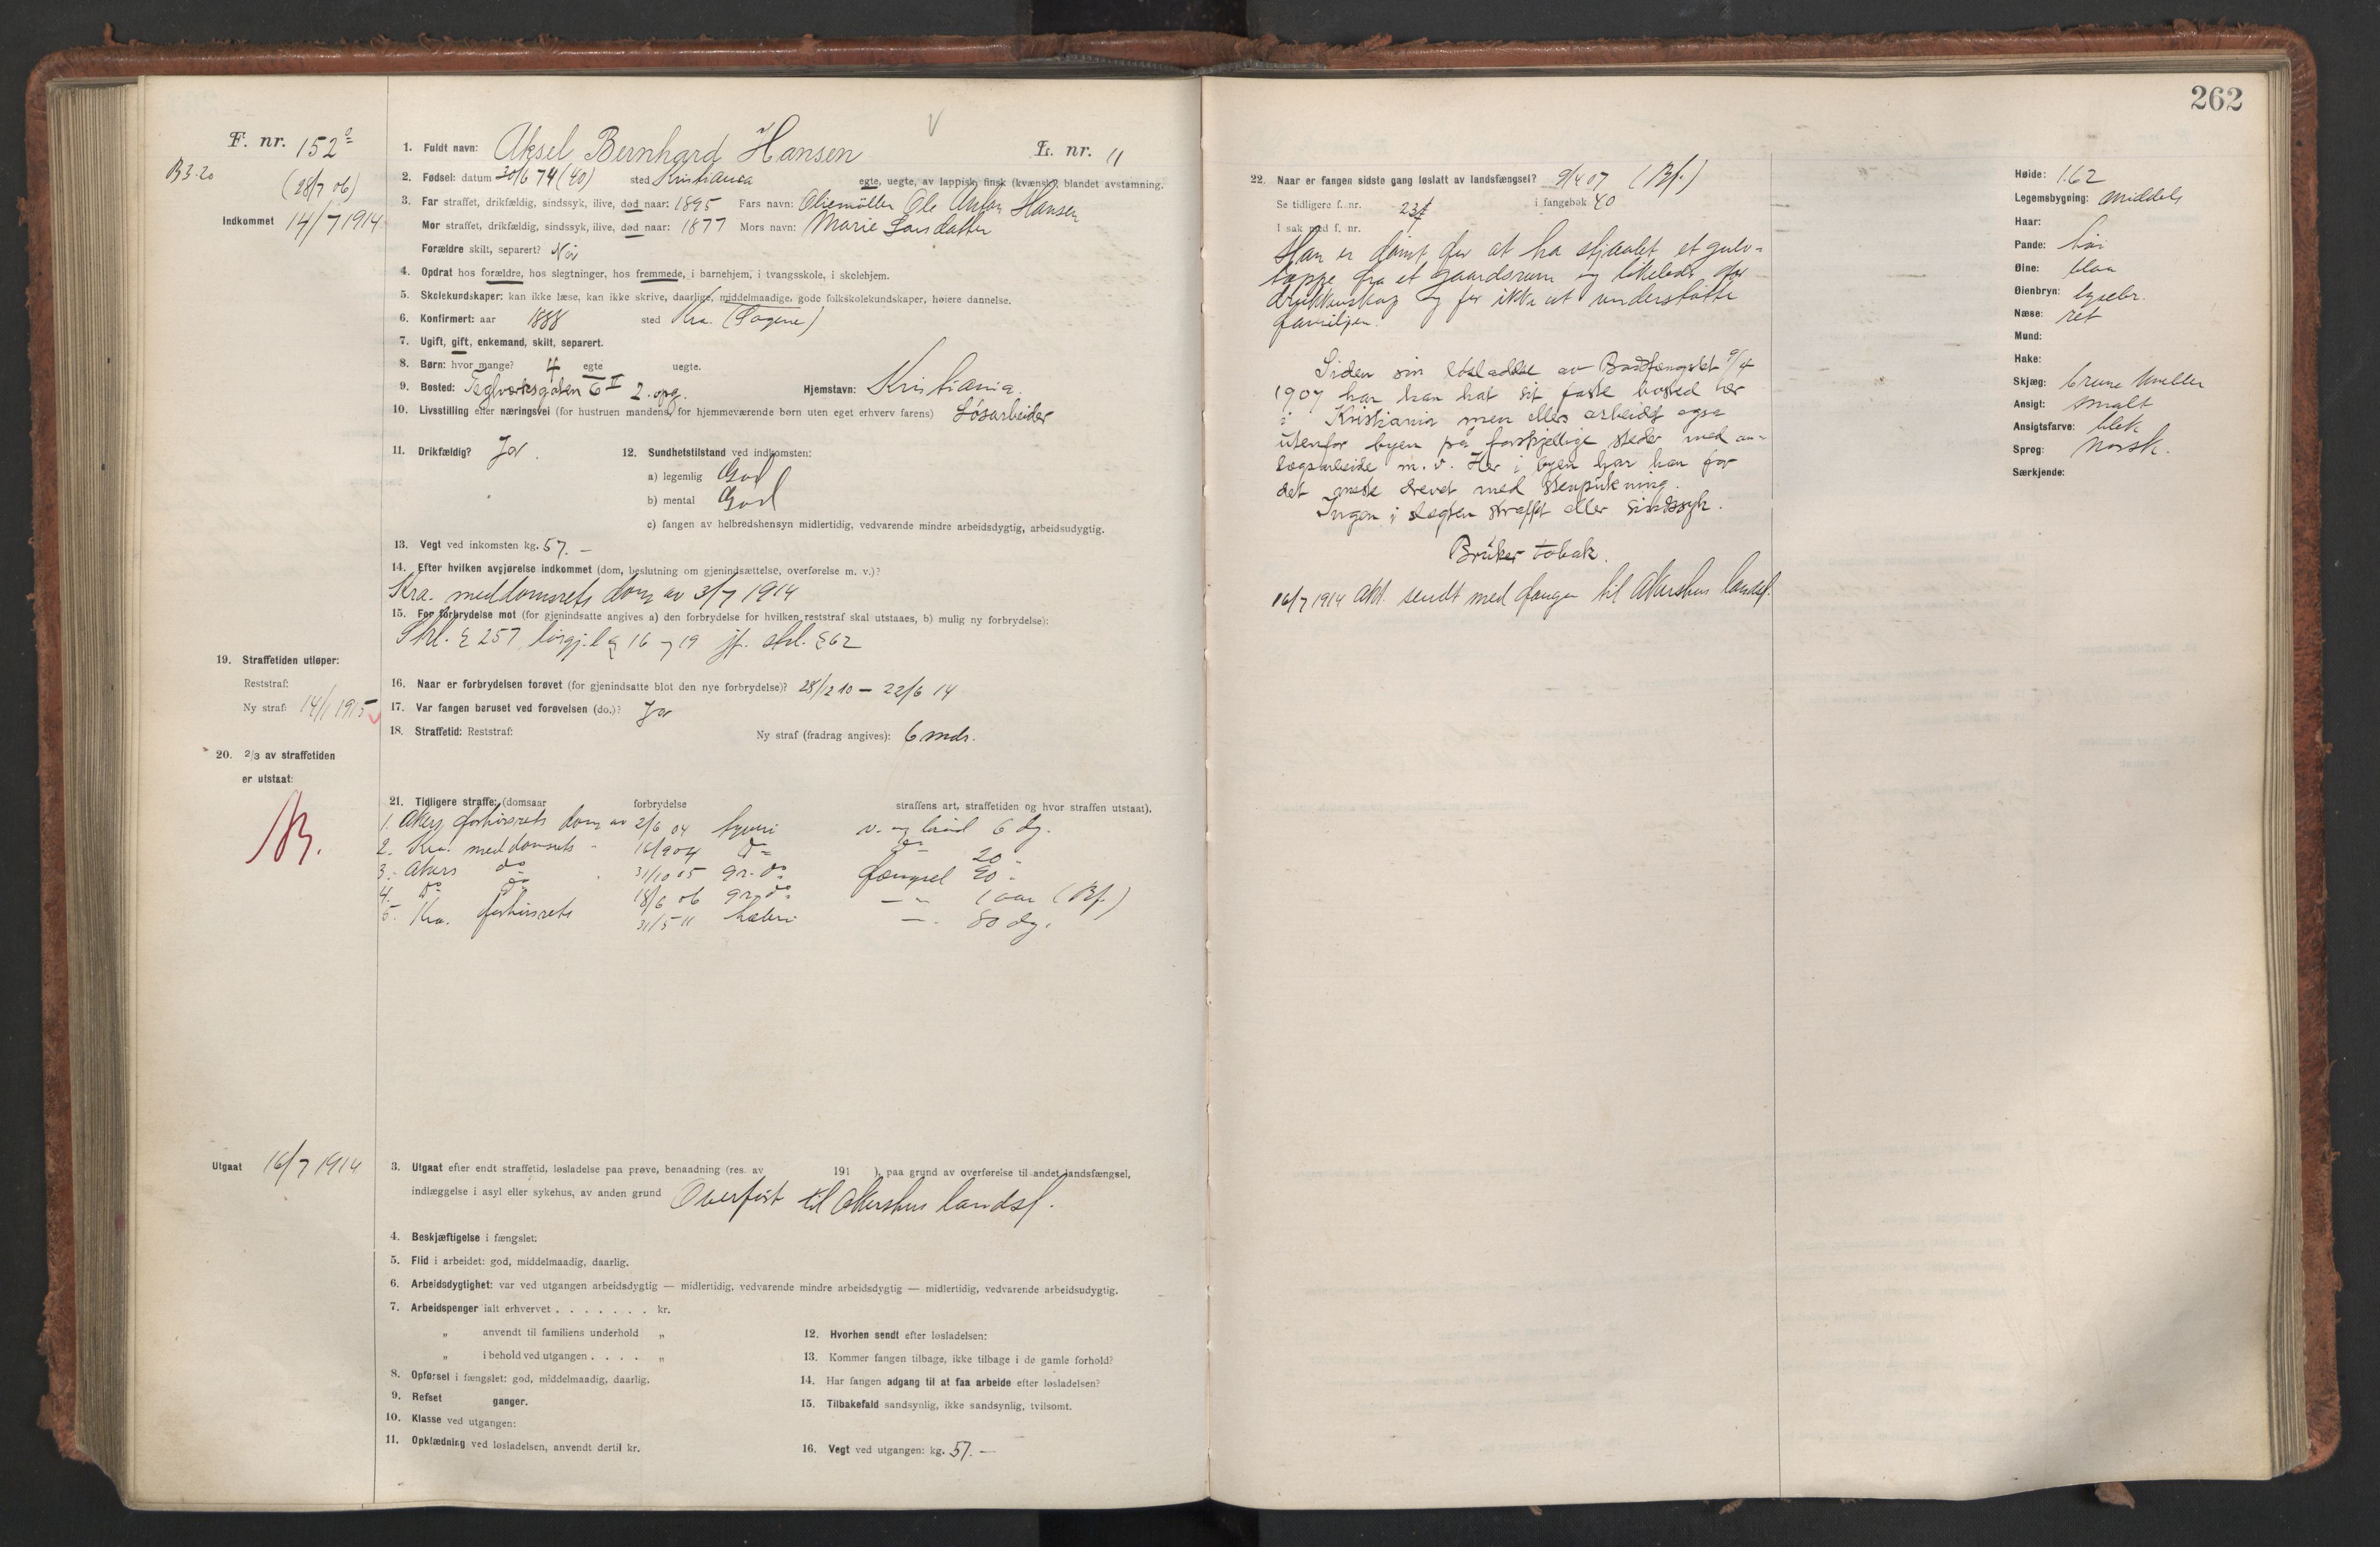 262
F. nr. 152
B3.20
(28/7 06)
Indkommet 14/7 1914
1. Fuldt navn: Aksel Bernhard Hansen L. nr. 11
2. Fødsel: datum 30/6 74 (40) sted Kristiania egte, uegte, av lappisk, finsk (kvænsk), blandet avstamning.
3. Far straffet, drikfældig, sindssyk, ilive, død naar: 1895 Fars navn: Oliemöller Ole Anton Hansen
Mor straffet, drikfældig, sindssyk, ilive, død naar: 1877 Mors navn: Marie Larsdatter
Forældre skilt, separert? Nei
4. Opdrat hos forældre, hos slegtninger, hos fremmede, i barnehjem, i tvangsskole, i skolehjem.
5. Skolekundskaper: kan ikke læse, kan ikke skrive, daarlige, middelmaadige, gode folkskolekundskaper, høiere dannelse.
6. Konfirmert: aar 1888 sted Kra. (Sagene)
7. Ugift, gift, enkemand, skilt, separert.
8. Børn: hvor mange? 4 egte uegte.
9. Bosted: Teglverksgaten 6 II 2. opg. Hjemstavn: Kristiania.
10. Livsstilling eller næringsvei (for hustruen mandens, for hjemmeværende børn uten eget erhverv farens) Løsarbeider
11. Drikfældig? Ja. 12. Sundhetstilstand ved indkomsten:
a) legemlig God
b) mental God
c) fangen av helbredshensyn midlertidig, vedvarende mindre arbeidsdygtig, arbeidsudygtig.
13. Vegt ved inkomsten kg. 57. —
14. Efter hvilken avgjørelse indkommet (dom, beslutning om gjenindsættelse, overførelse m. v.)?
Kra. meddomsrets dom av 3/7 1914
15. For forbrydelse mot (for gjenindsatte angives a) den forbrydelse for hvilken reststraf skal utstaaes, b) mulig ny forbrydelse):
Strl. § 257, løsgj.l. § 16 og 19 jf. strl. § 62
19. Straffetiden utløper:
Reststraf:
Ny straf: 14/1 1915
16. Naar er forbrydelsen forøvet (for gjenindsatte blot den nye forbrydelse)? 28/12 10 — 22/6 14
17. Var fangen beruset ved forøvelsen (do.)? Ja
18. Straffetid: Reststraf: Ny straf (fradrag angives): 6 mdr.
20. 2/3 av straffetiden
er utstaat:
B.
21. Tidligere straffe: (domsaar forbrydelse straffens art, straffetiden og hvor straffen utstaat).
1. Akers forhørsrets dom av 2/6 04 tyveri v. og brød 6 dg.
2. Kra. meddomsrets - 16/9 04 do do 20 -
3. Akers do 31/10 05 gr. do fængsel 90 -
4. do do 18/6 06 gr. do — - 1 aar (Bf.)
5. Kra. forhørsrets 31/5 11 hæleri — - 80 dg.
Utgaat 16/7 1914
3. Utgaat efter endt straffetid, løsladelse paa prøve, benaadning (res. av 191 ), paa grund av overførelse til andet landsfængsel,
indlæggelse i asyl eller sykehus, av anden grund Overført til Akershus landsf.
4. Beskjæftigelse i fængslet:
5. Flid i arbeidet: god, middelmaadig, daarlig.
6. Arbeidsdygtighet: var ved utgangen arbeidsdygtig — midlertidig, vedvarende mindre arbeidsdygtig — midlertidig, vedvarende arbeidsudygtig.
7. Arbeidspenger ialt erhvervet . . . . . . . kr.
„ anvendt til familiens underhold „
„ i behold ved utgangen . . . . „
8. Opførsel i fængslet: god, middelmaadig, daarlig.
9. Refset ganger.
10. Klasse ved utgangen:
11. Opklædning ved løsladelsen, anvendt dertil kr.
12. Hvorhen sendt efter løsladelsen:
13. Kommer fangen tilbage, ikke tilbage i de gamle forhold?
14. Har fangen adgang til at faa arbeide efter løsladelsen?
15. Tilbakefald sandsynlig, ikke sandsynlig, tvilsomt.
16. Vegt ved utgangen: kg. 57. —
22. Naar er fangen sidste gang løslatt av landsfængsel? 9/4 07 (Bf.)
Se tidligere f. nr. i fangebok 40
I sak med f. nr.
Han er dømt for at ha stjaalet et gulv-
teppe fra et gaardsrum og likeledes for
drukkenskap og for ikke at understøtte
familjen.
Siden sin løsladelse av Bodsfængslet 9/4
1907 har han hat sit faste bosted her
i Kristiania men ellers arbeidet ogsa
utenfor byen på forskjellige steder med an-
lægsarbeide m. v. Her i byen har han for
det meste drevet med stenpukning.
Ingen i slegten straffet eller sindssyk.
Bruker tobak.
16/7 1914 Akt. sendt med fangen til Akershus landsf.
Høide: 162
Legemsbygning: middels
Haar:
Pande: høi
Øine: blaa
Øienbryn: lysebr.
Næse: ret
Mund:
Hake:
Skjæg: brune kneller
Ansigt: smalt
Ansigtsfarve: blek
Sprog: norsk.
Særkjende: